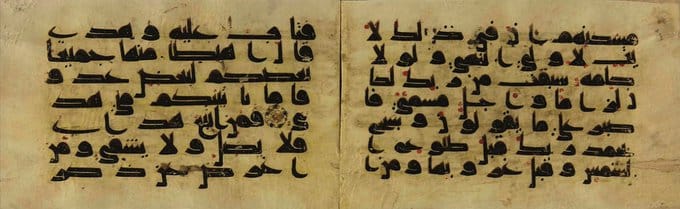 مسكنهم ان في ذلك لا
يت لاولي النهى ولولا
كلمة سبقت من ربك لكا
ن لزاما واجل مسمى فا
صبر على ما يقولون وسبح
بحمد ربك قبل طلوع ا
لشمس وقبل غروبها ومن ا
فتاب عليه وهدى
قال اهبطا منها جميعا
بعضكم لبعض عدو
فاما ياتينكم مني هد
ى فمن اتبع هداي
فلا يضل ولا يشقى ومن
اعرض عن ذكر